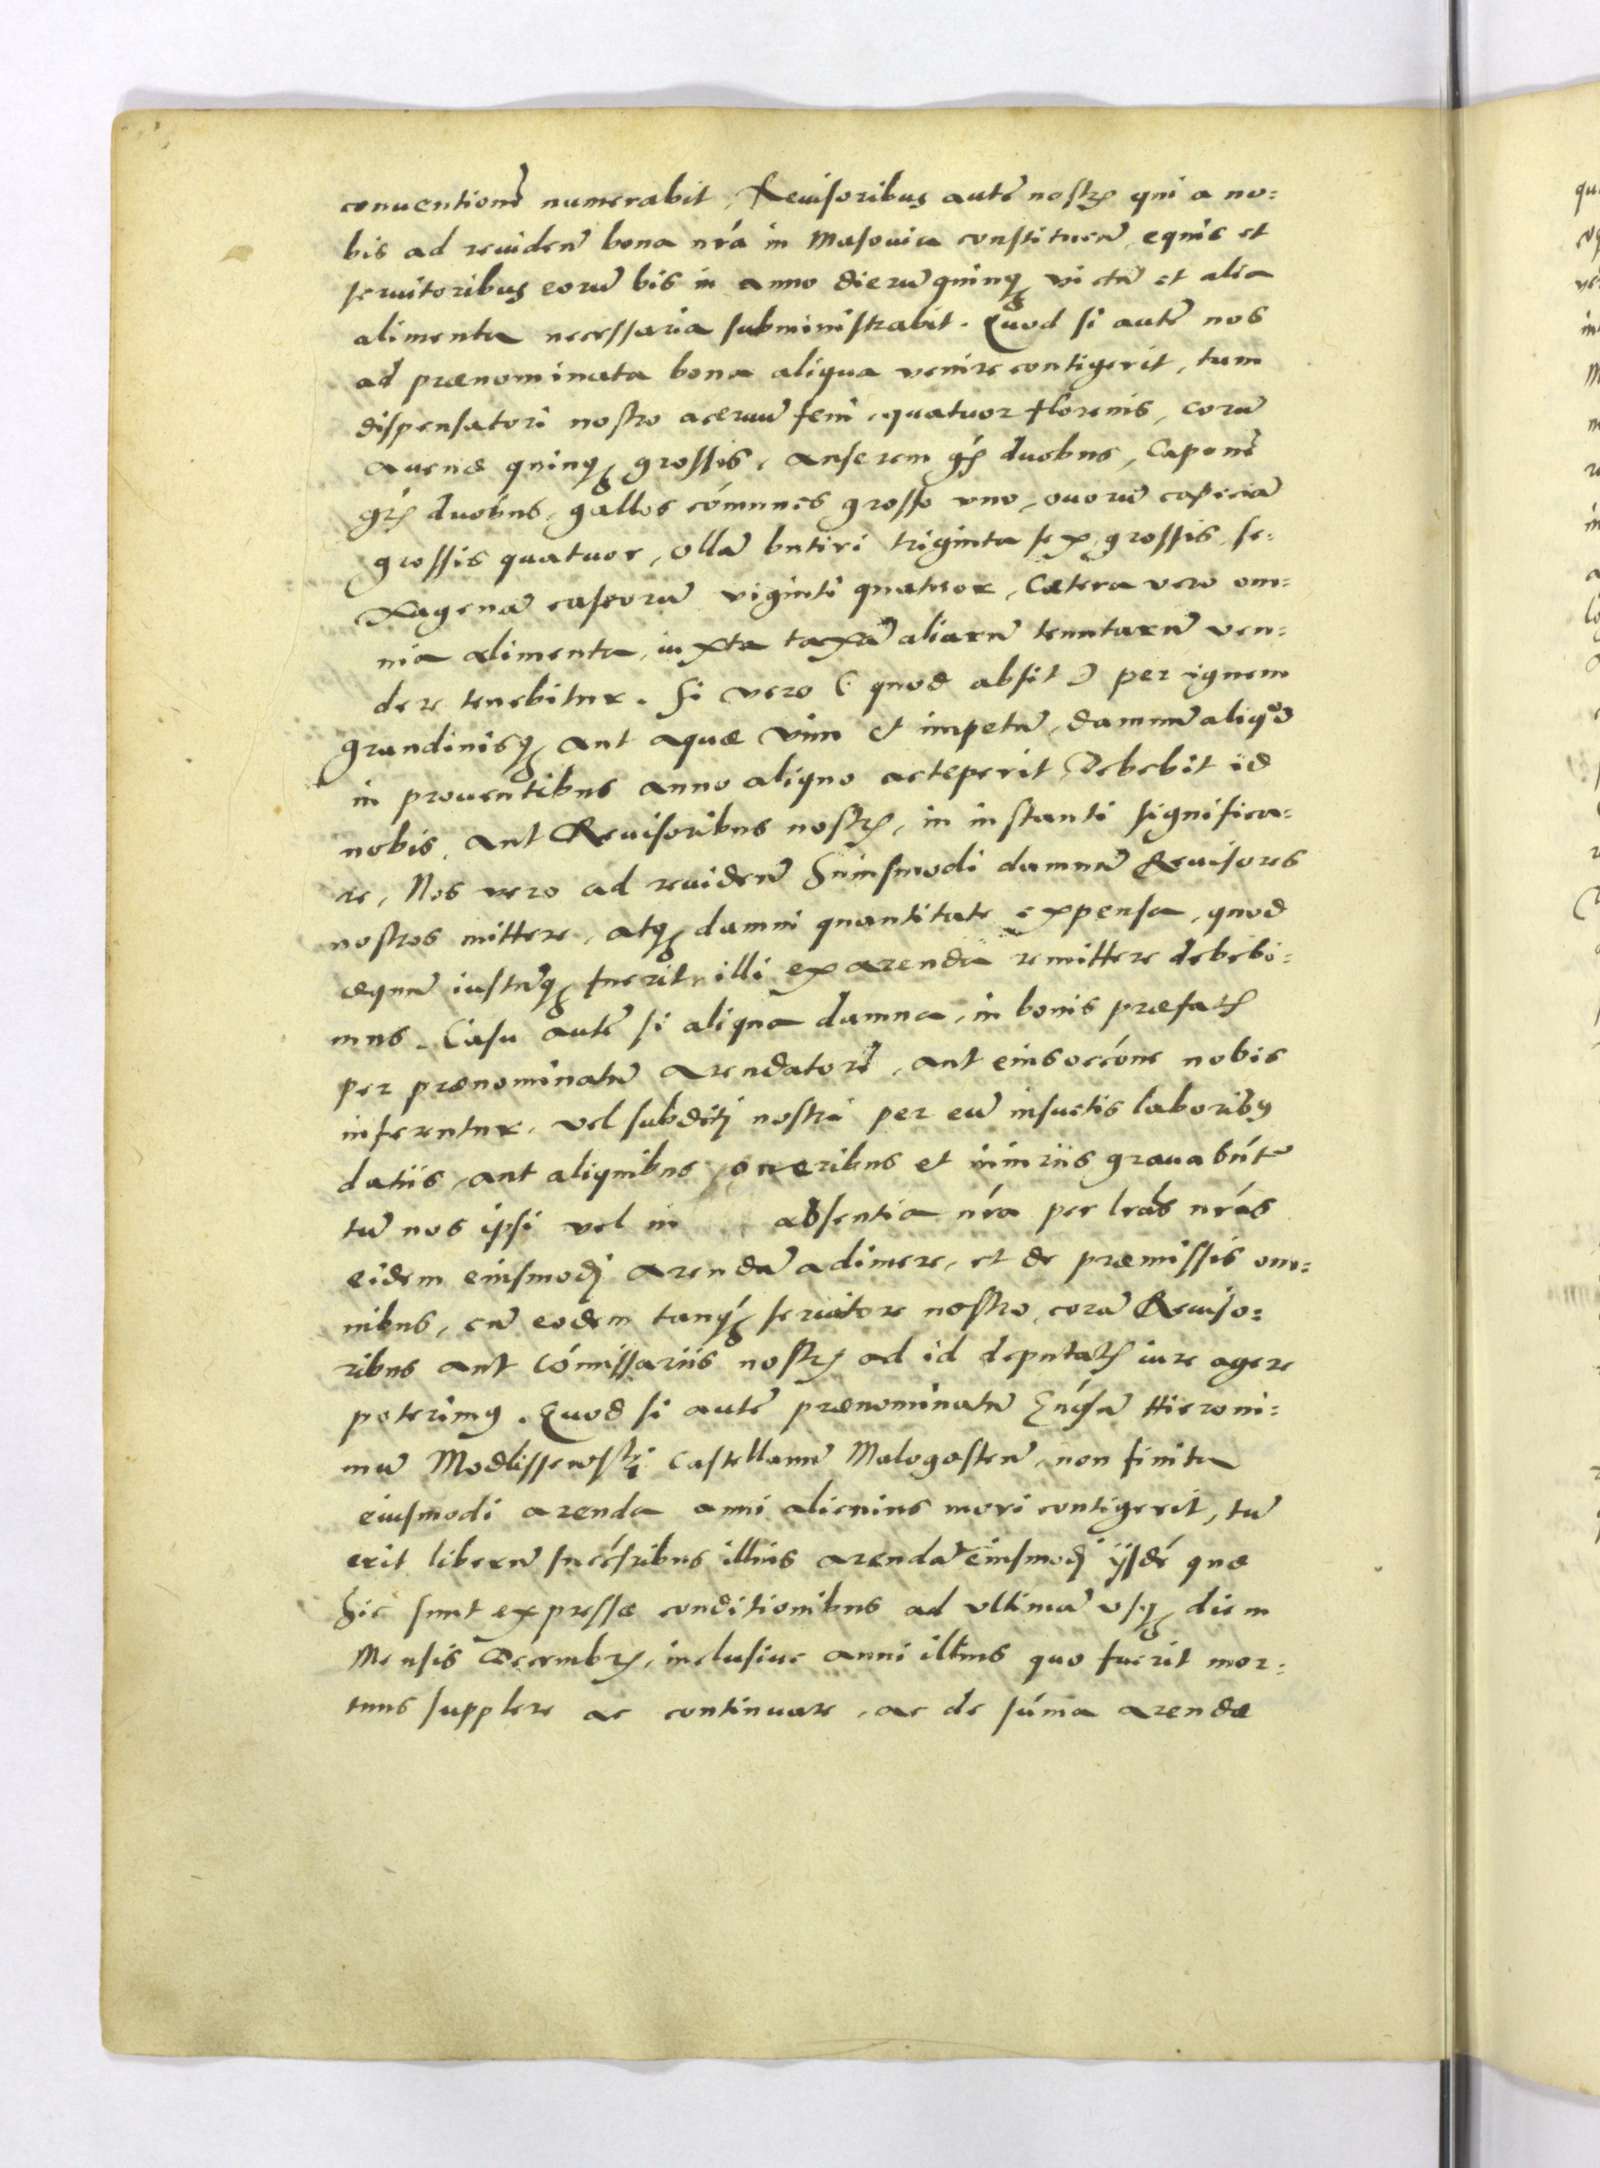 conuentionẽ numerabit, Reuisoribus autẽ nostrꝭ qui a no=
bis ad reuidenᷠ bona nr̃a in Masouia constituenᷠ, equis et
seruitoribus eorũ bis in anno dierũ quinqꝫ victũ et alia
alimenta necessaria subministrabit. Quod si autẽ nos
ad prænominata bona aliqua venire contigerit, tum
dispensatori nostro aceruũ feni quatuor florenis, corũ
auenæ quinqꝫ grossis, anserem gr̃ duobus, Caponẽ
gr̃ duobus, gallos cõmunes grosso vno, ouorũ capeciã
grossis quatuor, ollã butiri triginta sex grossis, se=
xagenã caseorũ viginti quatuor, Cætera vero om=
nia alimenta, iuxta taxã aliarũ tenutarũ ven=
dere tenebitur. Si vero ( quod absit ) per ignem
grandinisqꝫ aut aquæ vim et impetũ, damnũ aliqᵒd
in prouentibus anno aliquo acceperit Debebit id
nobis, aut Reuisoribus nostrꝭ, in instanti significa=
re, Nos vero ad reuidenᷠ huiusmodi damnũ Reuisores
nostros mittere, atqꝫ damni quantitate expensa, quod
æquũ iustũqꝫ fuerit, illi ex arenda remittere debebi=
mus. Casu autẽ si aliqua damna, in bonis præfatꝭ
per prænominatũ arendatorẽ, aut eius occõne nobis
inferentur, vel subditi nostri per eũ insuetis laboribꝰ
datiis, aut aliquibus oneribus et iniuriis grauabũtᵉ
tũ nos ipsi vel in absentia nr̃a per lr̃as nr̃as
eidem eiusmodi arendã adimere, et de præmissis om=
nibus, cũ eodem tanqꝫ seruitore nostro, corã Reuiso=
ribus aut Cõmissariis nostrꝭ ad id deputatꝭ iure agere
poterimꝰ. Quod si autẽ prænominatũ Gñsũ Hieroni=
mũ Modlissewski Castellanũ Malogostenᷠ, non finita
eiusmodi arenda anni alicuius mori contigerit, tũ
erit liberũ succ̃sribus illius arendã eiusmodi ijsdẽ quæ
hic sunt expressæ conditionibus ad vltimã vsqꝫ diem
Mensis Decembrꝭ, inclusiue anni illius quo fuerit mor=
tuus supplere ac continuare, ac de sũma arendæ